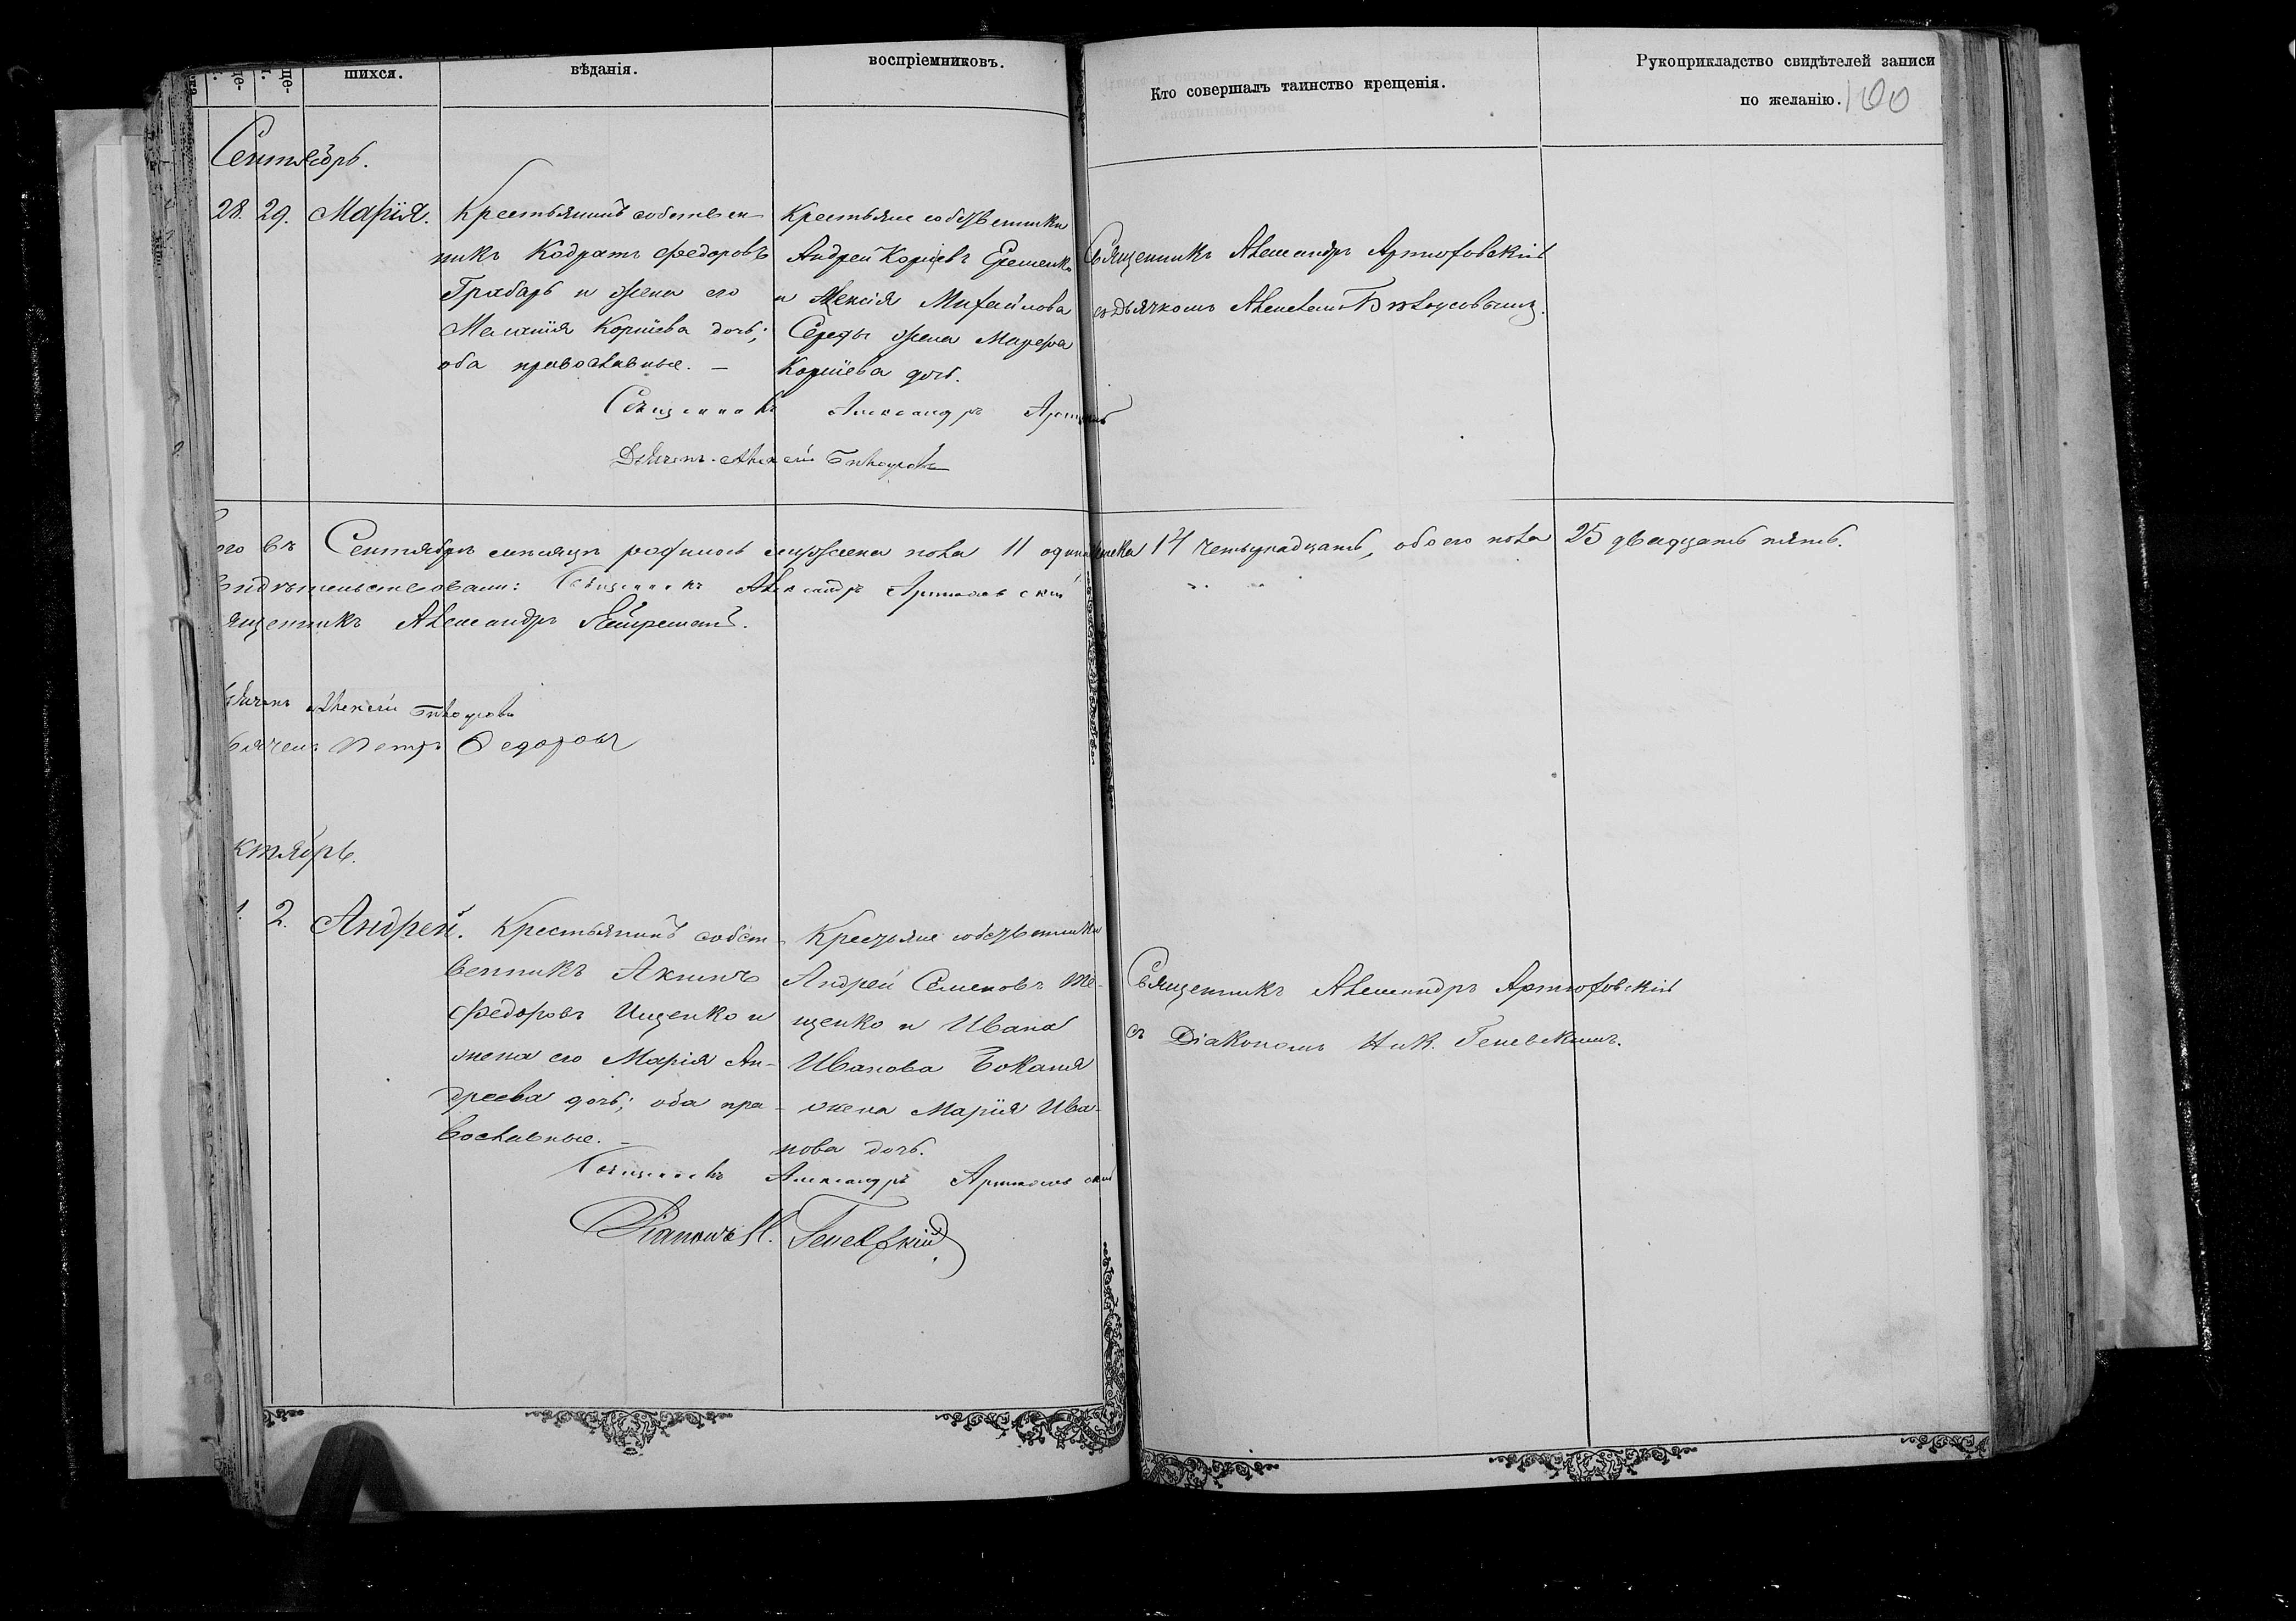 шихся.
вѣданія.
воспріемниковъ.
Кто совершалъ таинство крещенія.
Рукоприкладство свидѣтелей записи
по желанію.
100
Сентябрь.
28. 29. Марія.
Крестьянинъ собствен-
никъ Кодратъ Федоровъ
Грабарь и жена его
Меланія Корніева дочь;
оба православные. –
Крестьяне собственники
Андрей Корніевъ Ерешенко
и Алексія Михайлова
Середы жена Марфа
Корніева дочь.
Священникъ Александръ Артюховскій
съ Дьячкомъ Алексѣемъ Бѣлоусовымъ.
Священникъ Александръ
Дьячекъ Алексѣй Бѣлоусовъ
ого въ Сентябрѣ мѣсяцѣ родилось мужеска пола 11 одинадцать 14 четырнадцать, обоего пола 25 двадцать пять.
видѣтельствовали: Священникъ Александръ Артюховскій
ященникъ Александръ
ьячекъ Алексѣй Бѣлоусовъ
Петръ Федоровъ
ктябрь.
1. 2. Андрей.
Крестьянинъ собст-
венникъ Акимъ
Федоровъ Ищенко и
жена его Марія Ан-
дреева дочь; оба пра-
вославные. –
Крестьяне собственники
Андрей Семеновъ Те-
щенко и Ивана
Иванова Боканя
жена Марія Ива-
нова дочь.
Священникъ Александръ Артюховскій
съ Діакономъ Ник. Геневскимъ.
Священникъ Александръ Артюховскій
Діаконъ Н. Геневскій